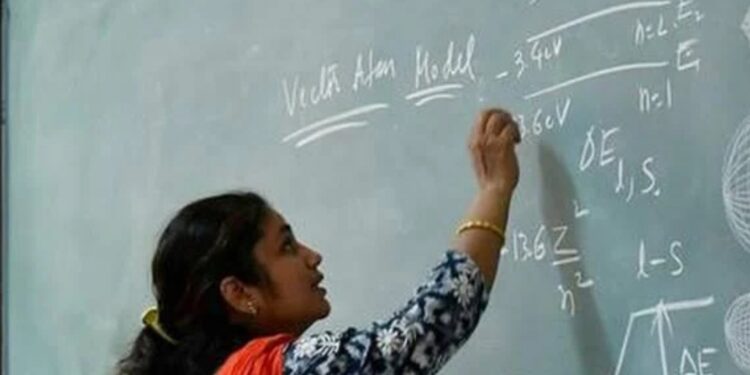 Vector Atom Model
n=2 E₂
-3.4eV
E
n=1
3.6eV
ΔE l,s.
-13.6 Z²/n²
l-s
ΔE